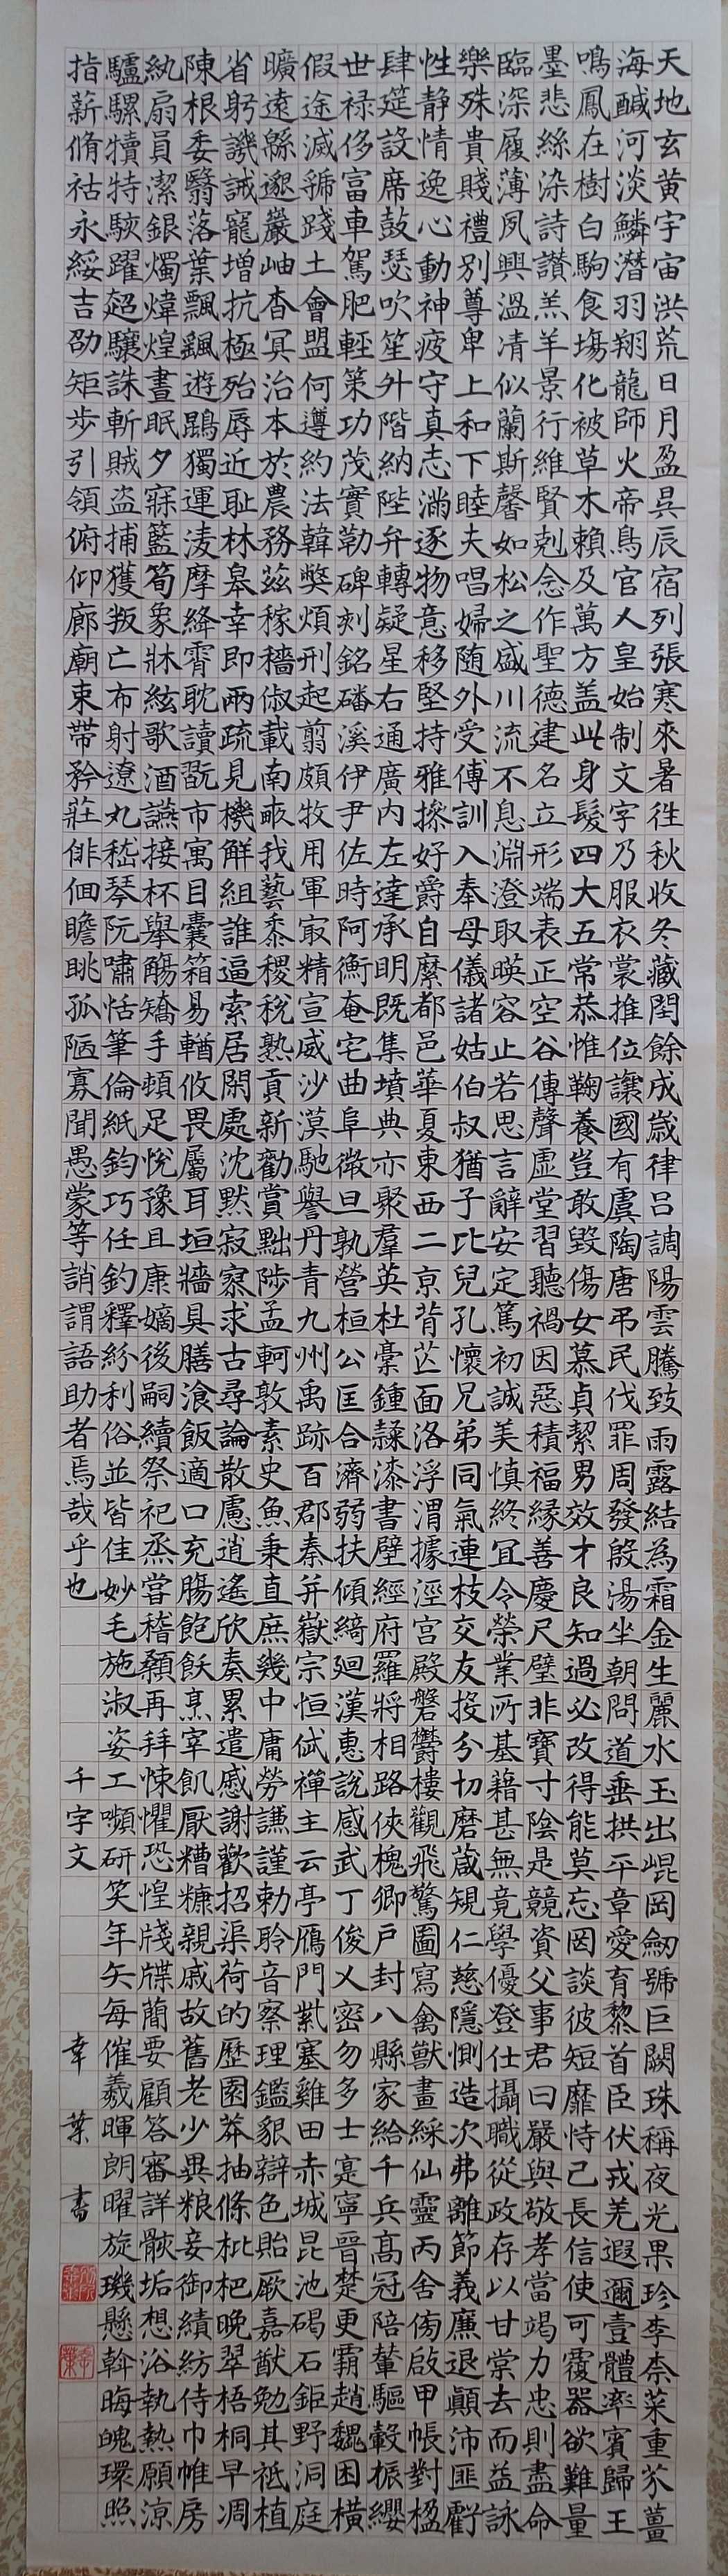 天地玄黄宇宙洪荒日月盈昃辰宿列張寒來暑往秋收冬藏閏餘成歳律呂調陽雲騰致雨露結為霜金生麗水玉出崐岡劔號巨闕珠稱夜光果珍李柰菜重芥薑
海醎河淡鱗潛羽翔龍師火帝鳥官人皇始制文字乃服衣裳推位讓國有虞陶唐弔民伐罪周發殷湯坐朝問道垂拱平章愛育黎首臣伏戎羌遐邇壹體率賓歸王
鳴鳳在樹白駒食場化被草木賴及萬方盖此身髮四大五常恭惟鞠養豈敢毀傷女慕貞絜男效才良知過必改得能莫忘罔談彼短靡恃己長信使可覆器欲難量
墨悲絲染詩讚羔羊景行維賢剋念作聖德建名立形端表正空谷傳聲虚堂習聽禍因惡積福縁善慶尺璧非寶寸陰是競資父事君曰嚴與敬孝當竭力忠則盡命
臨深履薄夙興溫凊似蘭斯馨如松之盛川流不息淵澄取暎容止若思言辭安定篤初誠美慎終宜令榮業所基藉甚無竟學優登仕攝職從政存以甘棠去而益詠
樂殊貴賤禮別尊卑上和下睦夫唱婦随外受傅訓入奉母儀諸姑伯叔猶子比兒孔懷兄弟同氣連枝交友投分切磨葴規仁慈隱惻造次弗離節義廉退顛沛匪虧
性静情逸心動神疲守真志滿逐物意移堅持雅操好爵自縻都邑華夏東西二京背芒面洛浮渭據涇宮殿磐欝樓觀飛驚圖寫禽獸畫綵仙靈丙舍傍啟甲帳對楹
肆筵設席鼓瑟吹笙外階納陛弁轉疑星右通廣内左達承明既集墳典亦聚羣英杜稾鍾隸漆書壁經府羅將相路俠槐卿戸封八縣家給千兵髙冠陪輦驅轂振纓
世禄侈富車駕肥輕策功茂實勒碑刻銘磻溪伊尹佐時阿衡奄宅曲阜微旦孰營桓公匡合濟弱扶傾綺迴漢惠說感武丁俊乂密勿多士寔寧晉楚更霸趙魏困橫
假途滅虢踐土會盟何遵約法韓弊煩刑起翦頗牧用軍最精宣威沙漠馳譽丹青九州禹跡百郡秦并嶽宗恒岱禪主云亭鴈門紫塞雞田赤城昆池碣石鉅野洞庭
曠遠緜邈巖岫杳冥治本於農務茲稼穡俶載南畝我藝黍稷稅熟貢新勸賞黜陟孟軻敦素史魚秉直庶幾中庸勞謙謹勅聆音察理鑑貌辯色貽厥嘉猷勉其祗植
省躬譏誡寵增抗極殆辱近耻林皋幸即兩疏見機解組誰逼索居閑處沈默寂寥求古尋論散慮逍遙欣奏累遣慼謝歡招渠荷的歷園莽抽條枇杷晚翠梧桐早凋
陳根委翳落葉飄颻遊鵾獨運凌摩絳霄耽讀翫市寓目囊箱易輶攸畏屬耳垣牆具膳飡飯適口充膓飽飫烹宰飢厭糟糠親戚故舊老少異粮妾御績紡侍巾帷房
紈扇員潔銀燭煒煌晝眠夕寐籃筍象牀絃歌酒讌接杯舉觴矯手頓足悅豫且康嫡後嗣續祭祀烝嘗稽顙再拜悚懼恐惶牋牒簡要顧答審詳骸垢想浴執熱願涼
驢騾犢特駭躍超驤誅斬賊盗捕獲叛亡布射遼丸嵇琴阮嘯恬筆倫紙鈞巧任釣釋紛利俗並皆佳妙毛施淑姿工嚬研笑年矢每催羲暉朗曜旋璣懸斡晦魄環照
指薪脩祜永綏吉劭矩步引領俯仰廊廟束帶矜莊俳佪瞻眺孤陋寡聞愚蒙等誚謂語助者焉哉乎也
千字文
幸葉書